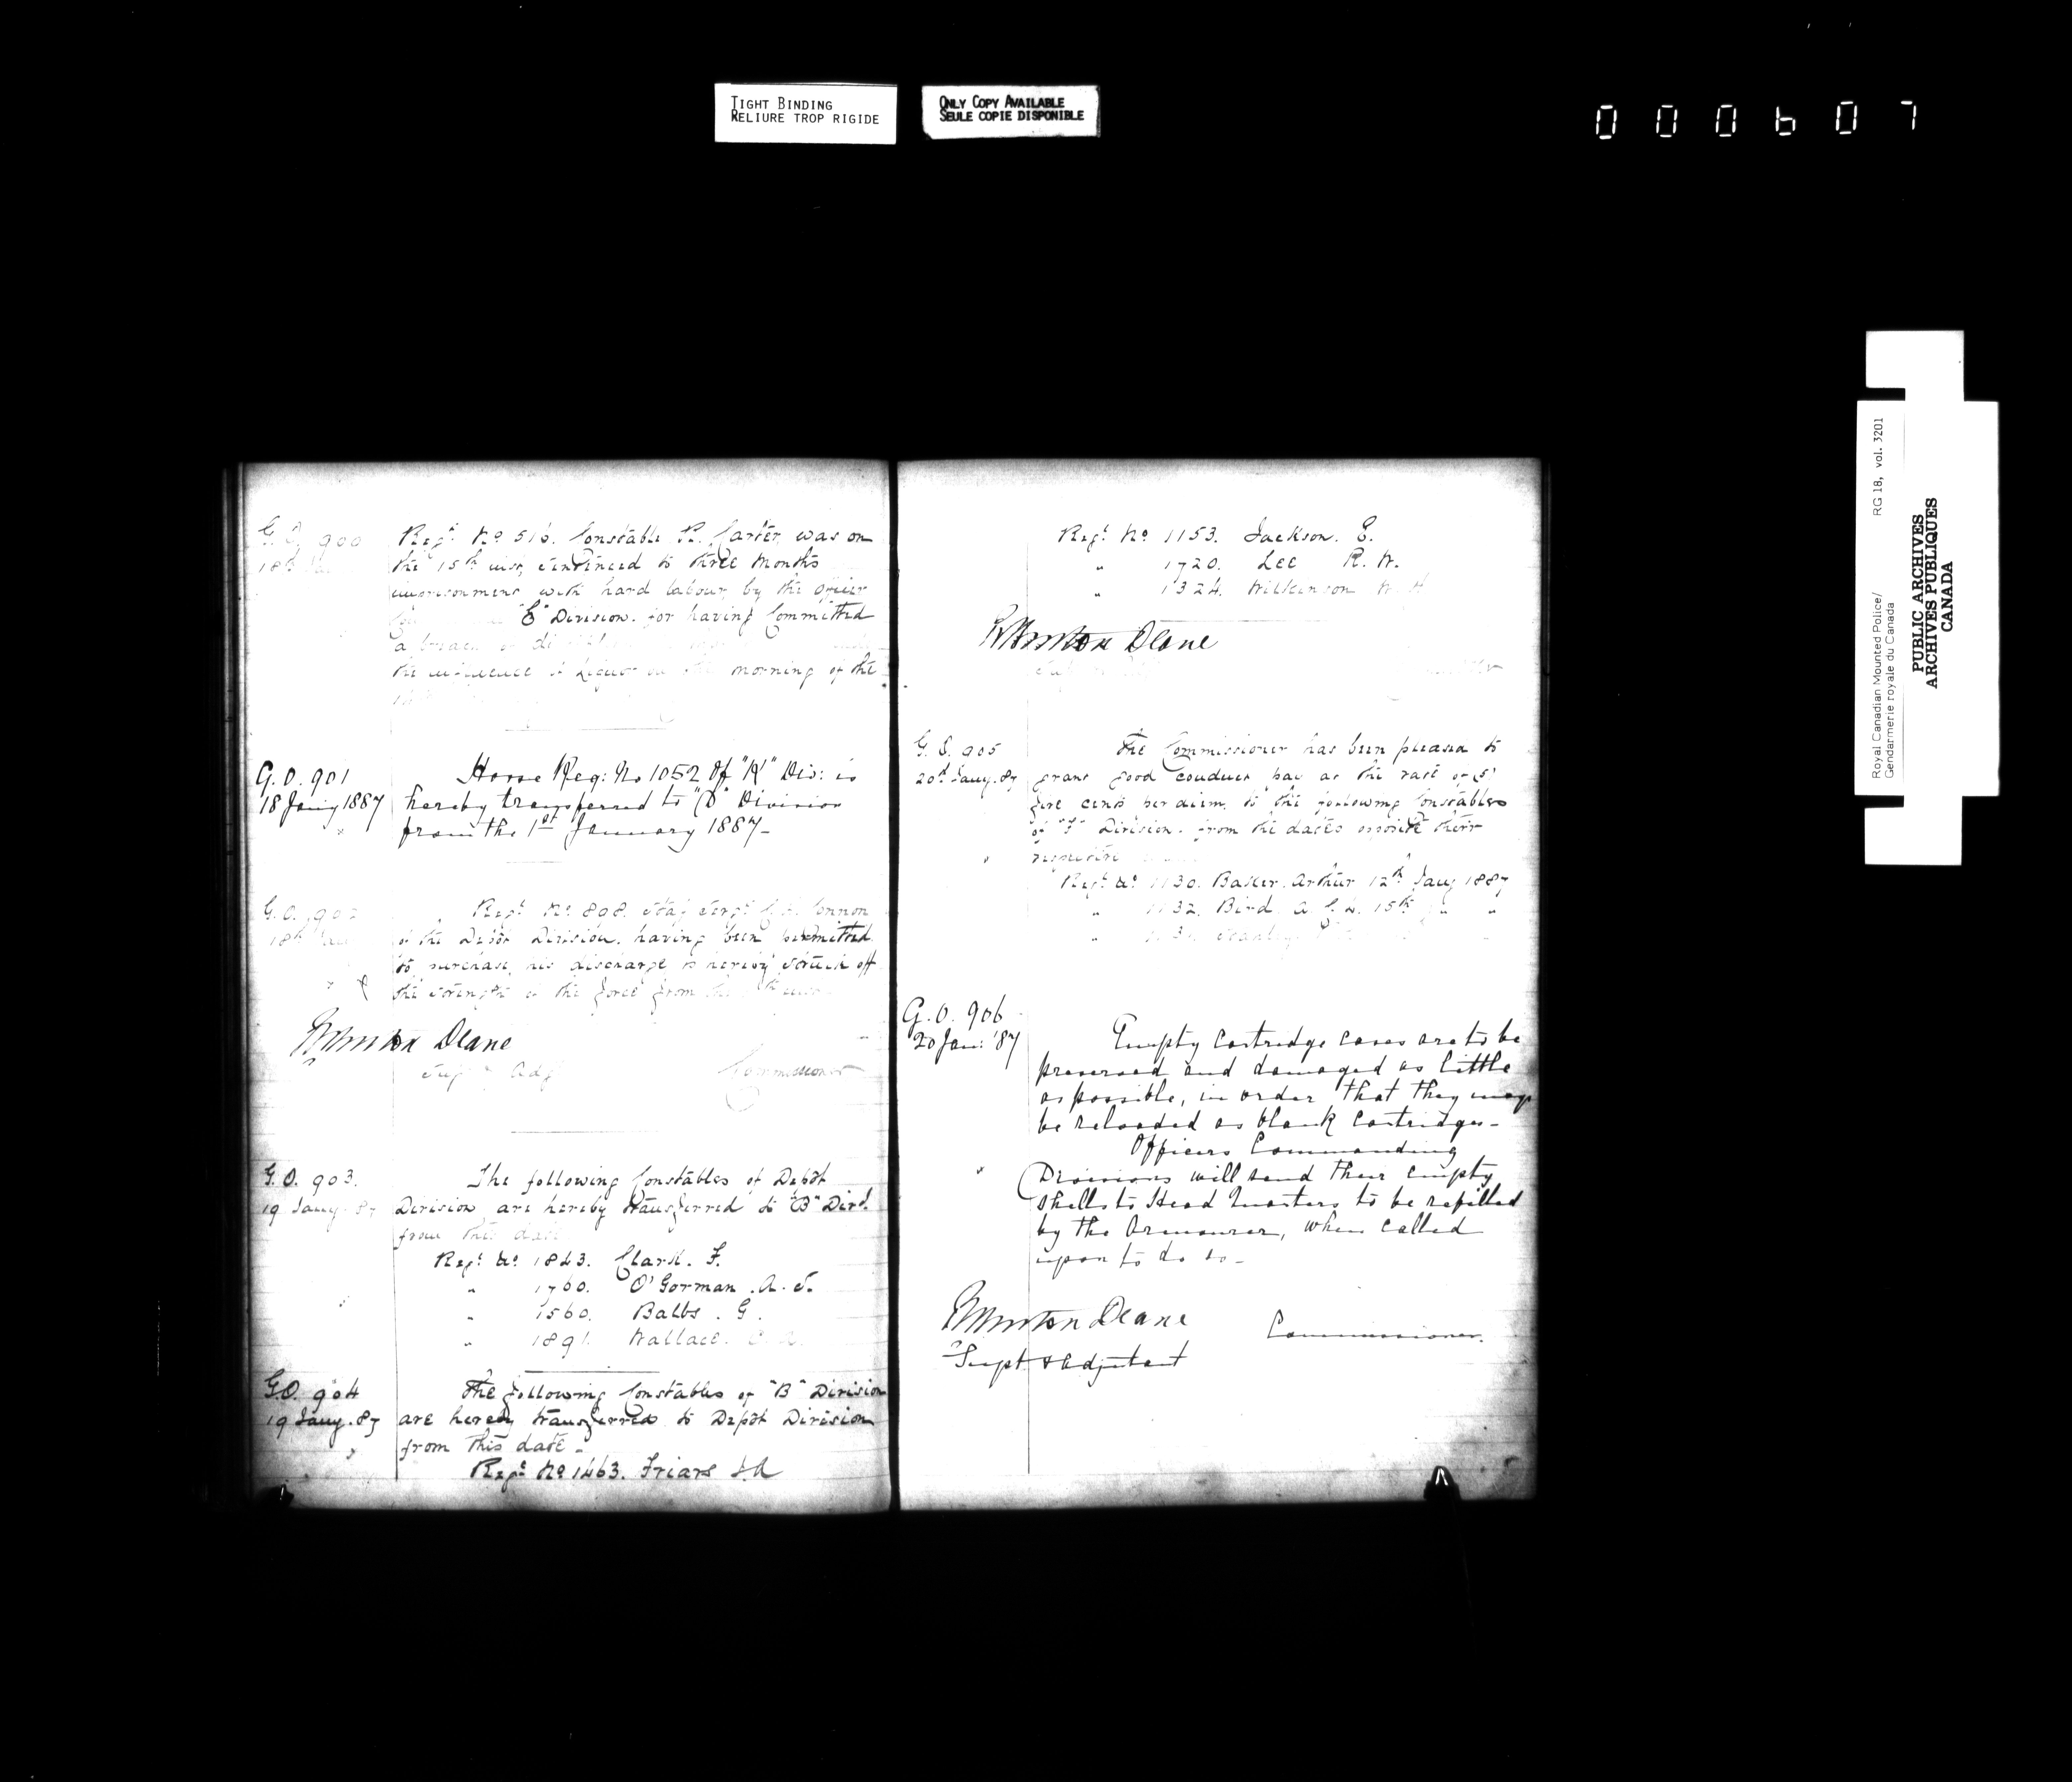 TIGHT BINDING
RELIURE TROP RIGIDE
ONLY COPY AVAILABLE
SEULE COPIE DISPONIBLE
000607
G.O. 900
18th
Regt. No 516. Constable R. Carter, was on
the 15th inst, sentenced to three months
imprisonment with hard labour, by the officer
"E" Division. for having Committed
a breach of
the influence of Liquor on the morning of the
G.O. 901
18 Jany 1887
Horse Reg: No 1052 Of "K" Div: is
hereby transferred to "D" Division
from the 1st January 1887-
G.O. 902
18th
Regt. No. 808. Staff Sergt. Connon
of the Depôt Division. having been permitted
to purchase his discharge is hereby struck off
the strength of the force from the inst
Burton Deane
Supt & Adjt
Commissioner
G.O. 903.
19 Jany. 87
The following Constables of Depôt
Division are hereby transferred to "B" Divn.
from this date
Regt. No. 1843. Clark. F.
" 1760. O'Gorman. A. J.
" 1560. Balbs. G.
" 1891. Wallace.
G.O. 904
19 Jany. 87
The following Constables of "B" Division
are hereby transferred to Depôt Division
from this date-
Regt. No 1463. Friars J.A
Regt. No. 1153. Jackson. E.
" 1720. Lee R. W.
" 1324. Wilkinson
Burton Deane
G.O. 905
20th Jany. 87
The Commissioner has been pleased to
grant good conduct pay at the rate of (5)
five cents per diem, to the following Constables
of "F" Division. from the dates opposite their
respective
Regt. No. 1130. Baker. Arthur 12th Jany 1887
" 1132. Bird. A. 15th " "
G.O. 906
20 Jan: '87
Empty cartridge cases are to be
preserved and damaged as little
as possible, in order that they may
be reloaded as blank cartridges-
Officers Commanding
Divisions will send their empty
shells to Head Quarters to be refilled
by the Armourer, when called
upon to do so-
Burton Deane
Supt & Adjutant
Commissioner.
Royal Canadian Mounted Police/
Gendarmerie royale du Canada
RG 18, vol. 3201
PUBLIC ARCHIVES
ARCHIVES PUBLIQUES
CANADA